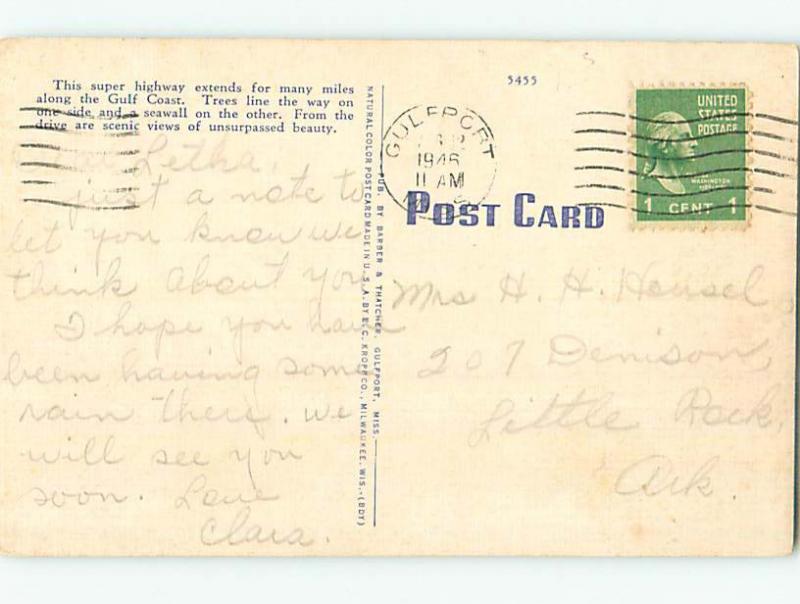 This super highway extends for many miles
along the Gulf Coast. Trees line the way on
one side and a seawall on the other. From the
drive are scenic views of unsurpassed beauty.
Letha,
just a note to
let you know we
think about you
I hope you have
been having some
rain there. We
will see you
soon. Love
Clara.
NATURAL COLOR POST CARD MADE IN U.S.A. BY E. C. KROPP CO., MILWAUKEE, WIS.-(BDY)
PUB. BY BARBER & THATCHER, GULFPORT, MISS.
5455
GULFPORT
1946
11 AM
POST CARD
UNITED
STATES
POSTAGE
WASHINGTON
1 CENT 1
Mrs H. H. Hensel,
207 Denison,
Little Rock,
Ark.